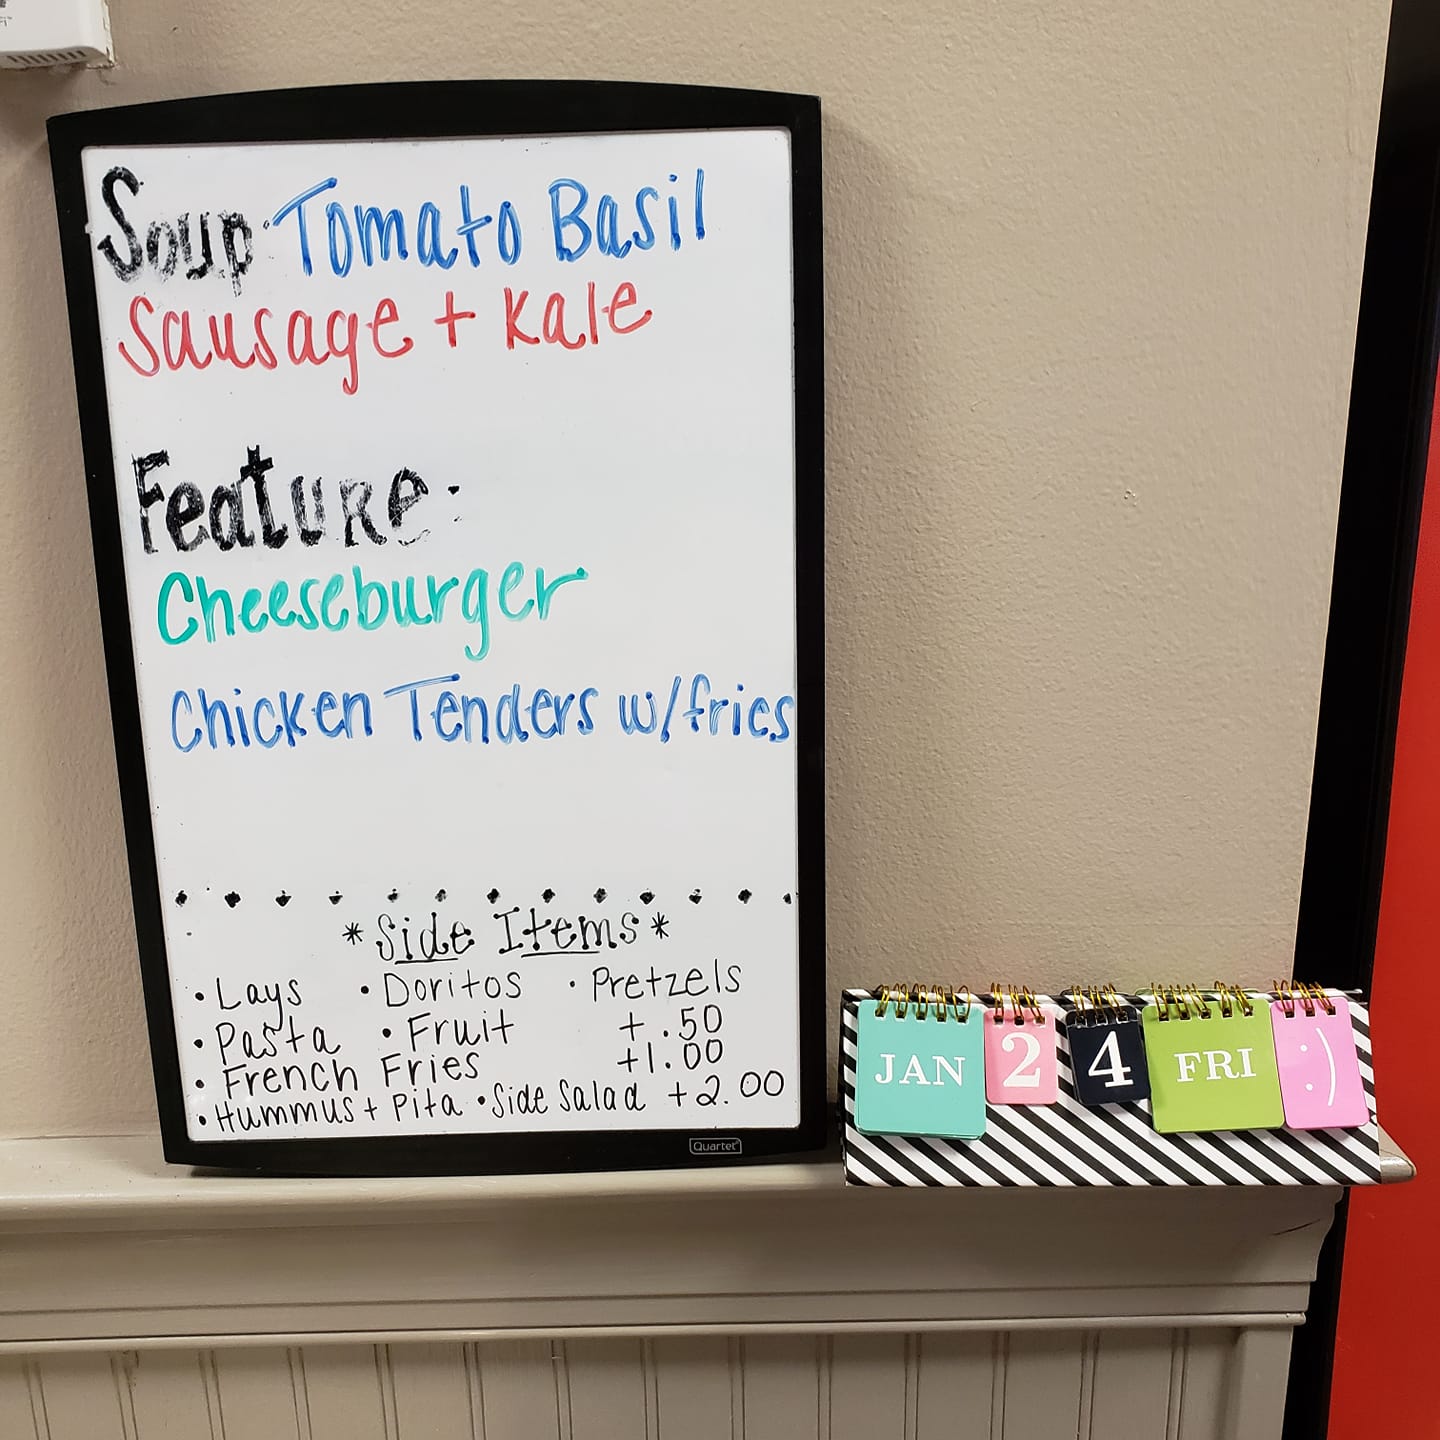 Soup: Tomato Basil
Sausage + Kale
Feature:
Cheeseburger
Chicken Tenders w/fries
*Side Items*
• Lays • Doritos • Pretzels
• Pasta • Fruit + .50
• French Fries +1.00
• Hummus + Pita • Side Salad +2.00
Quartet
JAN 2 4 FRI :)